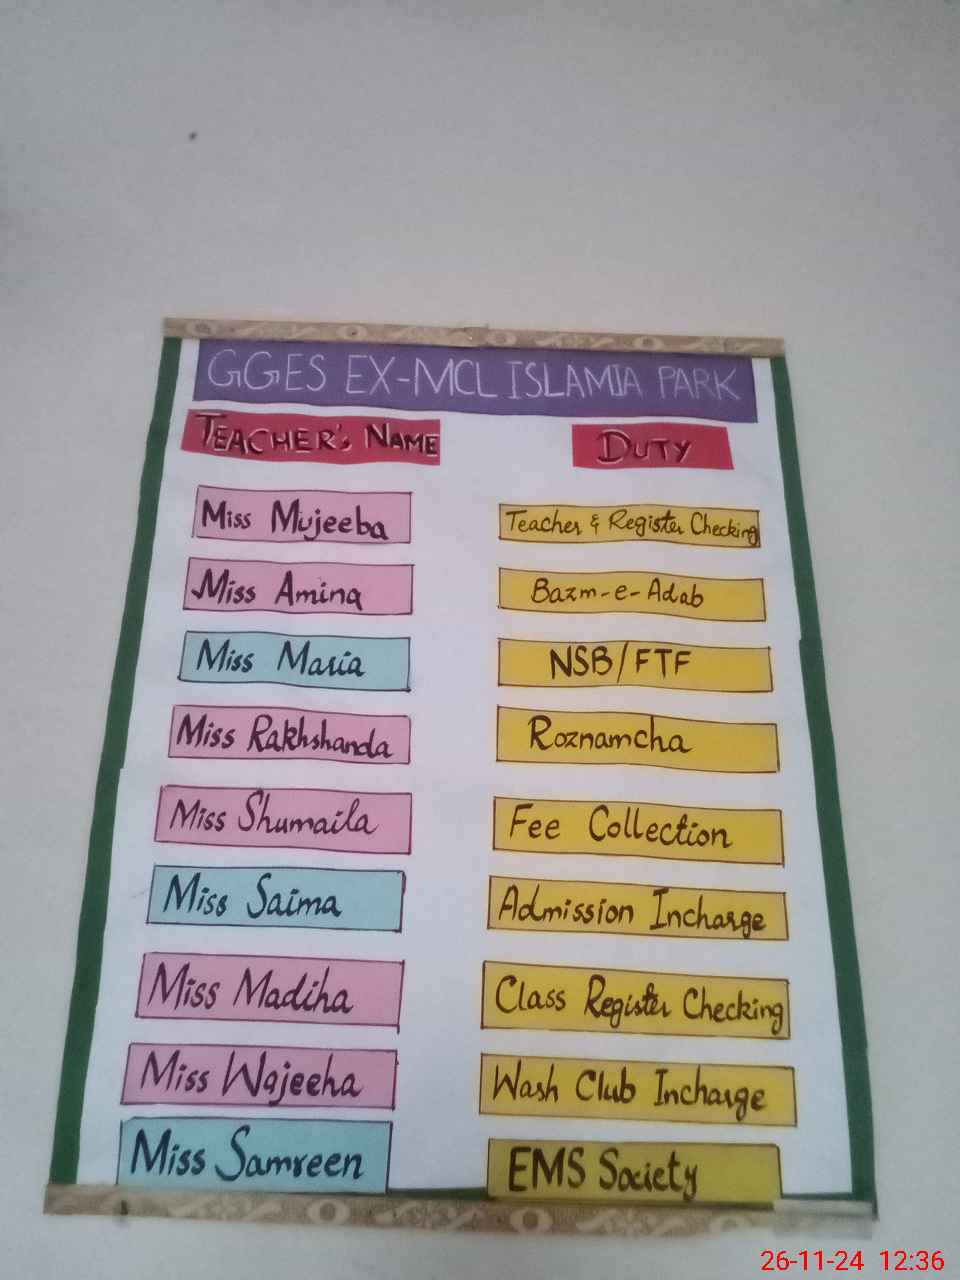 GGES EX-MCL ISLAMIA PARK
TEACHER'S NAME DUTY
Miss Mujeeba Teacher & Register Checking
Miss Amina Bazm-e-Adab
Miss Maria NSB/FTF
Miss Rakhshanda Roznamcha
Miss Shumaila Fee Collection
Miss Saima Admission Incharge
Miss Madiha Class Register Checking
Miss Wajeeha Wash Club Incharge
Miss Samreen EMS Society
26-11-24 12:36